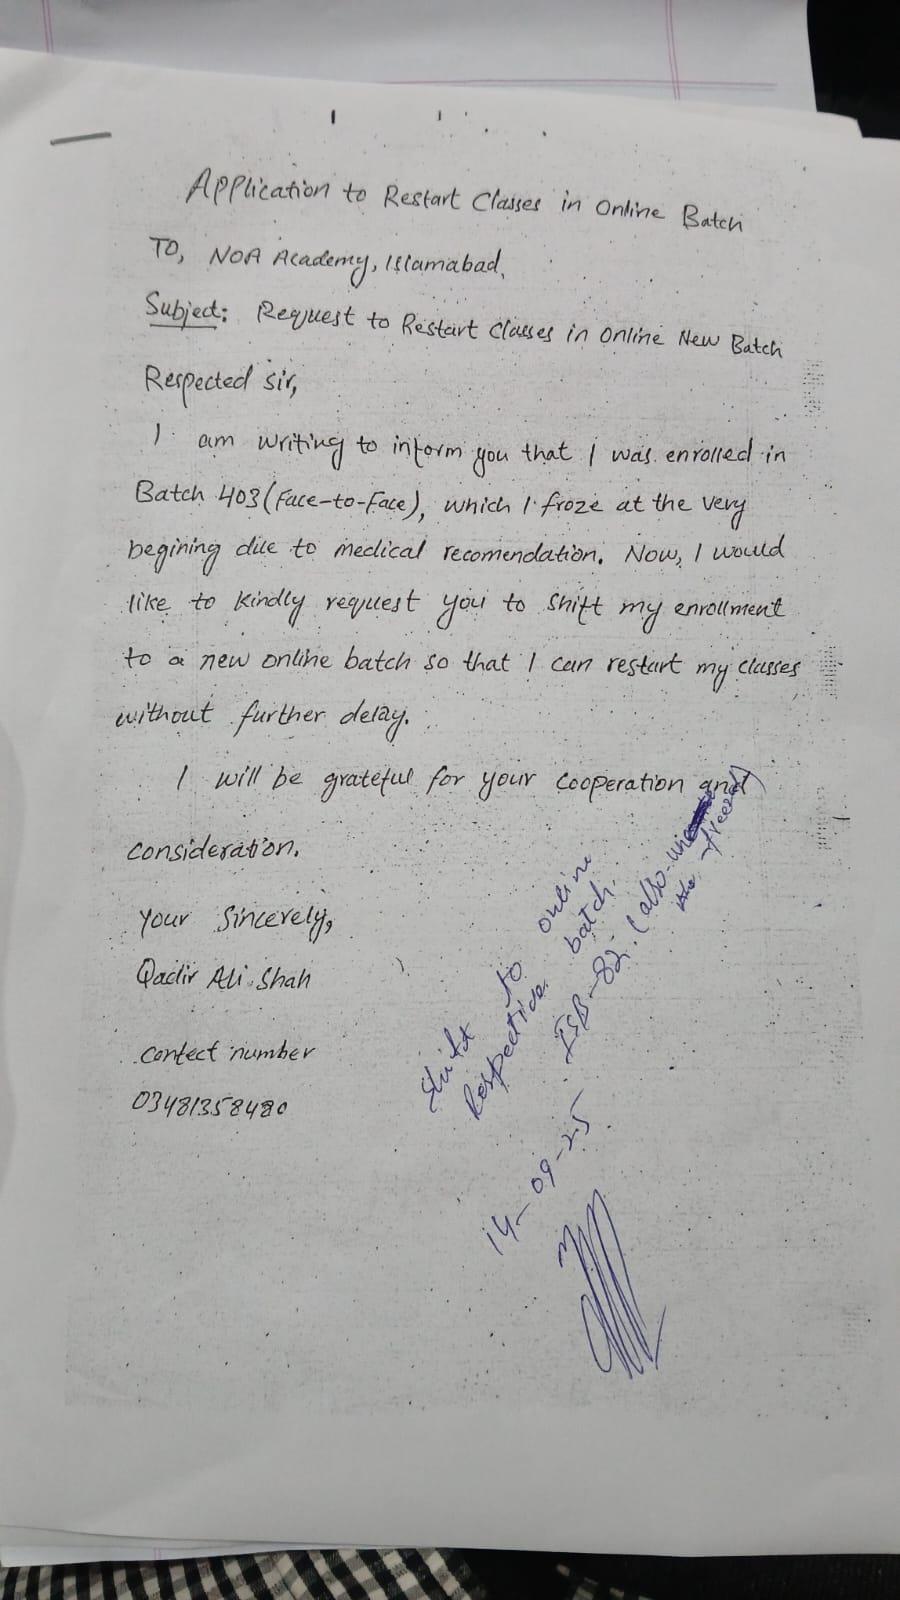 Application to Restart Classes in Online Batch
TO, NOA Academy, Islamabad,
Subject: Request to Restart Classes in Online New Batch
Respected sir,
I am writing to inform you that I was enrolled in
Batch 403 (Face-to-Face), which I froze at the very
begining due to medical recomendation. Now, I would
like to kindly request you to shift my enrollment
to a new online batch so that I can restart my classes
without further delay.
I will be grateful for your cooperation and
consideration.
Your Sincerely,
Qadir Ali Shah
Contect number
03481358480
to online
Respective batch.
ISB-82. (also
freezed)
14-09-25